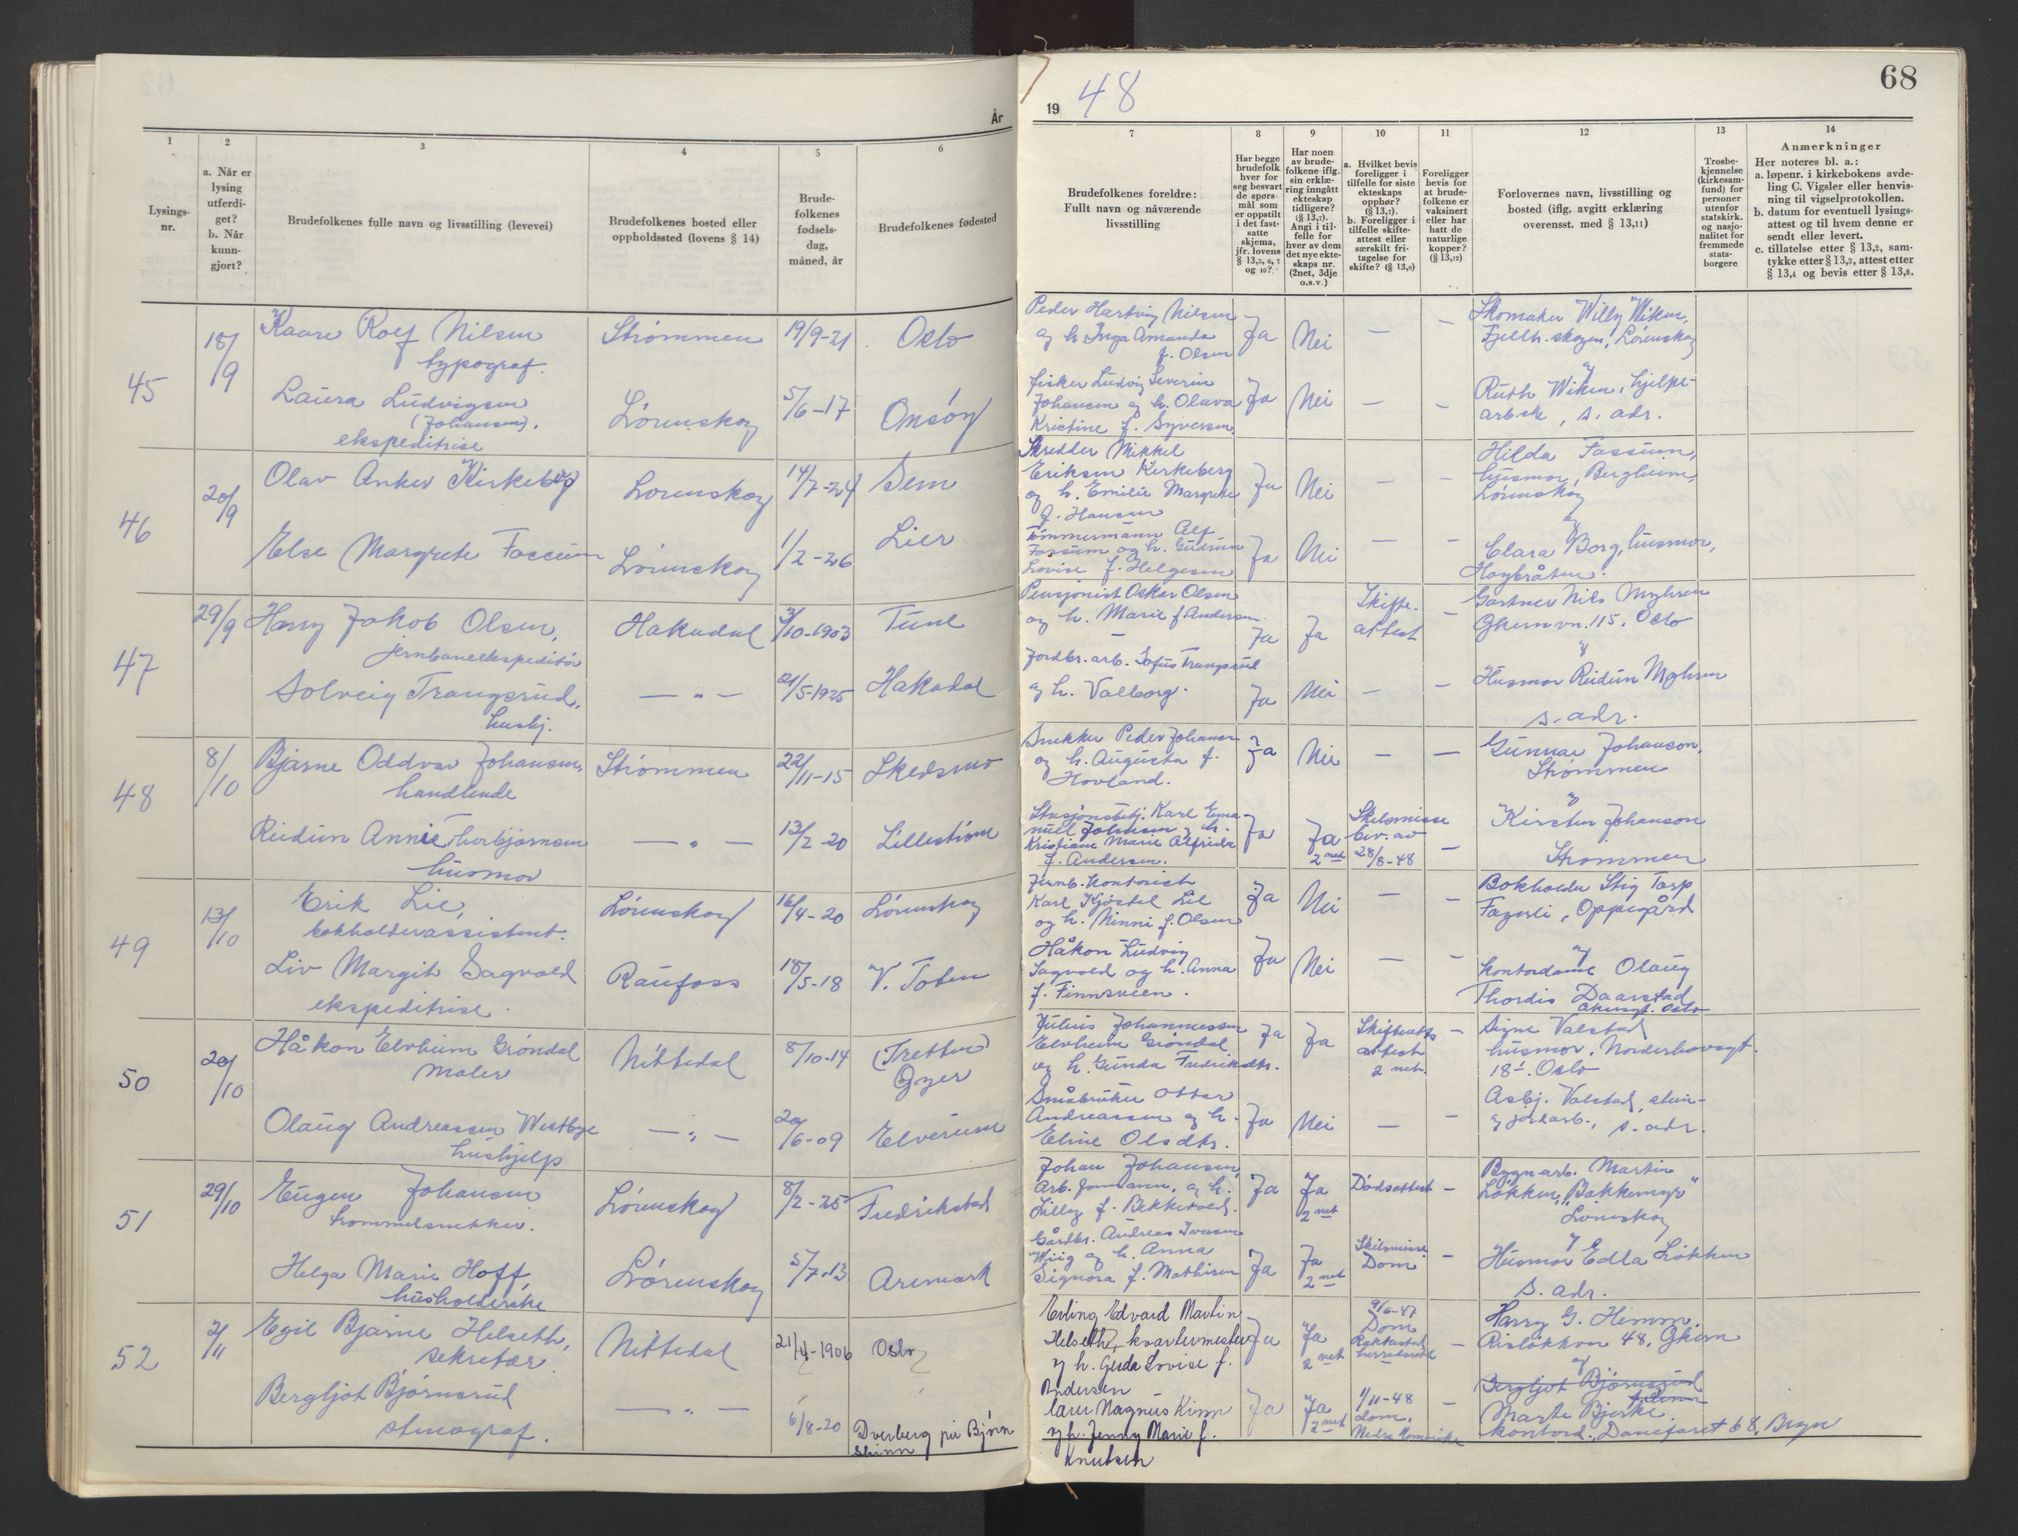 År
1
2
3
4
5
6
Lysings-
nr.
a. Når er
lysing
utferdi-
get?
b. Når
kunn-
gjort?
Brudefolkenes fulle navn og livsstilling (levevei)
Brudefolkenes bosted eller
oppholdssted (lovens § 14)
Brude-
folkenes
fødsels-
dag,
måned, år
Brudefolkenes fødested
45
18/9
Kaare Rolf Nilsen
typograf.
Strømmen
19/9-21
Oslo
Laura Ludvigsen
(Johansen).
ekspeditrise
Lørenskog
5/6-17
Onsøy
46
20/9
Olav Anker Kirkeberg
Lørenskog
14/7-24
Sem
Else Margrete Fossum
Lørenskog
1/2-26
Lier
47
29/9
Harry Jakob Olsen,
jernbaneekspeditør
Hakadal
3/10-1903
Tune
Solveig Trangsrud,
hushj.
— " —
21/5-1925
Hakadal
48
8/10
Bjarne Oddvar Johansen,
handlende
Strømmen
22/11-15
Skedsmo
Reidun Annie Thorbjørnsen
husmor
— " —
13/2-20
Lillestrøm
49
13/10
Erik Lie,
bokholderassistent.
Lørenskog
16/4-20
Lørenskog
Liv Margit Sagvold
ekspeditrise.
Raufoss
18/5-18
V. Toten
50
20/10
Håkon Elvheim Grøndal
Maler
Nittedal
8/10-14
(Tretten)
Øyer
Olaug Andreassen Westbye
hushjelp
— " —
20/6-09
Elverum
51
29/10
Eugen Johansen
trommelsnekker.
Lørenskog
8/2-25
Fredrikstad
Helga Marie Hoff,
husholderske
Lørenskog
5/7-13
Aremark
52
2/11
Egil Bjarne Helseth,
sekretær.
Nittedal
21/4-1906
Oslo
Bergljot Bjørnsrud
stenograf.
— " —
6/8-20
Dverberg på Bjørn
skinn
19 48
68
7
8
9
10
11
12
13
14
Brudefolkenes foreldre:
Fullt navn og nåværende
livsstilling
Har begge
brudefolk
hver for
seg besvart
de spørs-
mål som
er oppstilt
i det fast-
satte
skjema,
jfr. lovens
§ 13,5, 6, 7
og 10?
Har noen
av brude-
folkene iflg.
sin erklæ-
ring inngått
ekteskap
tidligere?
(§ 13,7).
Angi i til-
felle for
hver av dem
det nye ekte-
skaps nr.
(2net, 3dje
o.s.v.)
a. Hvilket bevis
foreligger i
tilfelle for siste
ekteskaps
opphør?
(§ 13,7).
b. Foreligger i
tilfelle skifte-
attest eller
særskilt fri-
tagelse for
skifte? (§ 13,9)
Foreligger
bevis for
at brude-
folkene er
vaksinert
eller har
hatt de
naturlige
kopper?
(§ 13,12)
Forlovernes navn, livsstilling og
bosted (iflg. avgitt erklæring
overensst. med § 13,11)
Trosbe-
kjennelse
(kirkesam-
fund) for
personer
utenfor
statskirk.
og nasjo-
nalitet for
fremmede
stats-
borgere
Anmerkninger
Her noteres bl. a.:
a. løpenr. i kirkebokens avde-
ling C. Vigsler eller henvis-
ning til vigselprotokollen.
b. datum for eventuell lysings-
attest og til hvem denne er
sendt eller levert.
c. tillatelse etter § 13,2, sam-
tykke etter § 13,3, attest etter
§ 13,4 og bevis etter § 13,8.
Peder Hartvig Nilsen
og h. Inga Amanda
f. Olsen
Ja
Nei
—
—
Skomaker Willy Wiken,
Fjellh. skogen, Lørenskog
fisker Ludvig Severin
Johansen og h. Olava
Kristine f. Syversen
Ja
Nei
—
—
og
Ruth Wiken, hjelpe-
arbeide, s. adr.
Skredder Mikkel
Eriksen Kirkeberg
og h. Emilie Margrete
f. Hansen
Ja
Nei
—
—
Hilda Fossum,
husmor, Bergheim,
Lørenskog
og
Tømmermann Alf
Fossum og h. Gudrun
Lovise f. Helgesen
Ja
Nei
—
—
Clara Borg, husmor,
Høybråten.
Pensjonist Oskar Olsen
og h. Marie f. Andersen
—
Ja
Ja
Skifte-
attest
—
Gartner Nils Myhren
Økernvn. 115. Oslo
og
Jordbr. arb. Sofus Trangsrud
og h. Valborg.
Ja
Nei
—
—
Husmor Reidun Myhren
s. adr.
Snekker Peder Johansen
og h. Augusta f.
Hovland.
Ja
Nei
—
—
Gunnar Johanson,
Strømmen
og
Stasjonsbetj. Karl Ema
nuel Johnsen og h.
Kristiane Marie Alfrida
f. Andersen.
Ja
Ja
2 net
Skilsmisse
bev. av
28/8-48
—
Kirsten Johanson
Strømmen
Jernb. kontorist
Karl Kjøstel Lie
og h. Ninni f. Olsen
Ja
Nei
—
—
Bokholder Stig Tarp
Fagerli, Oppegård
og
Håkon Ludvig
Sagvold og h. Anna
f. Finnsveen.
Ja
Nei
—
—
kontordame Olaug
Thordis Daarstad
Akersgt. Oslo
Julius Johannessen
Elvheim Grøndal
og h. Gunda Fredriksdtr.
Ja
Ja
Skifteatts
attest
2 net.
—
Signe Valstad
husmor, Norderhovsgt.
18. Oslo
Småbruker Otter
Andreassen og h.
Eline Olsdtr.
Ja
Nei
—
—
Asbj. Valstad, sten-
og jordarb., s. adr.
Johan Johansen,
Arb. formann, og h.
Lilly f. Bekkevold.
Ja
Ja
2 net
Dødsattest
—
Bygn. arb. Martin
Løkken, "Bakkemyr"
Lørenskog
og
Gårdbr. Andreas Iversen
Wiig og h. Anna
Signora f. Mathisen
Ja
Ja
2 net
Skilsmisse
Dom
—
Husmor Edla Løkken
s. adr.
Erling Edvard Martin
Helseth, kvartermester
og h. Gerda Lovise f.
Andersen
Ja
Ja
2 net
9/6-47
Dom
herredsrett
—
Harry G. Hemm.
Risløkkvn 48, Økern
og
lærer Magnus Kinn
og h. Jenny Marie f.
Knutsen
Ja
Ja
2 net
1/11-48
dom.
Nedre Romerike
—
Bergljot Bjørnsrud
Marte Bjerke.
kontord. Danefaret 68, Bryn